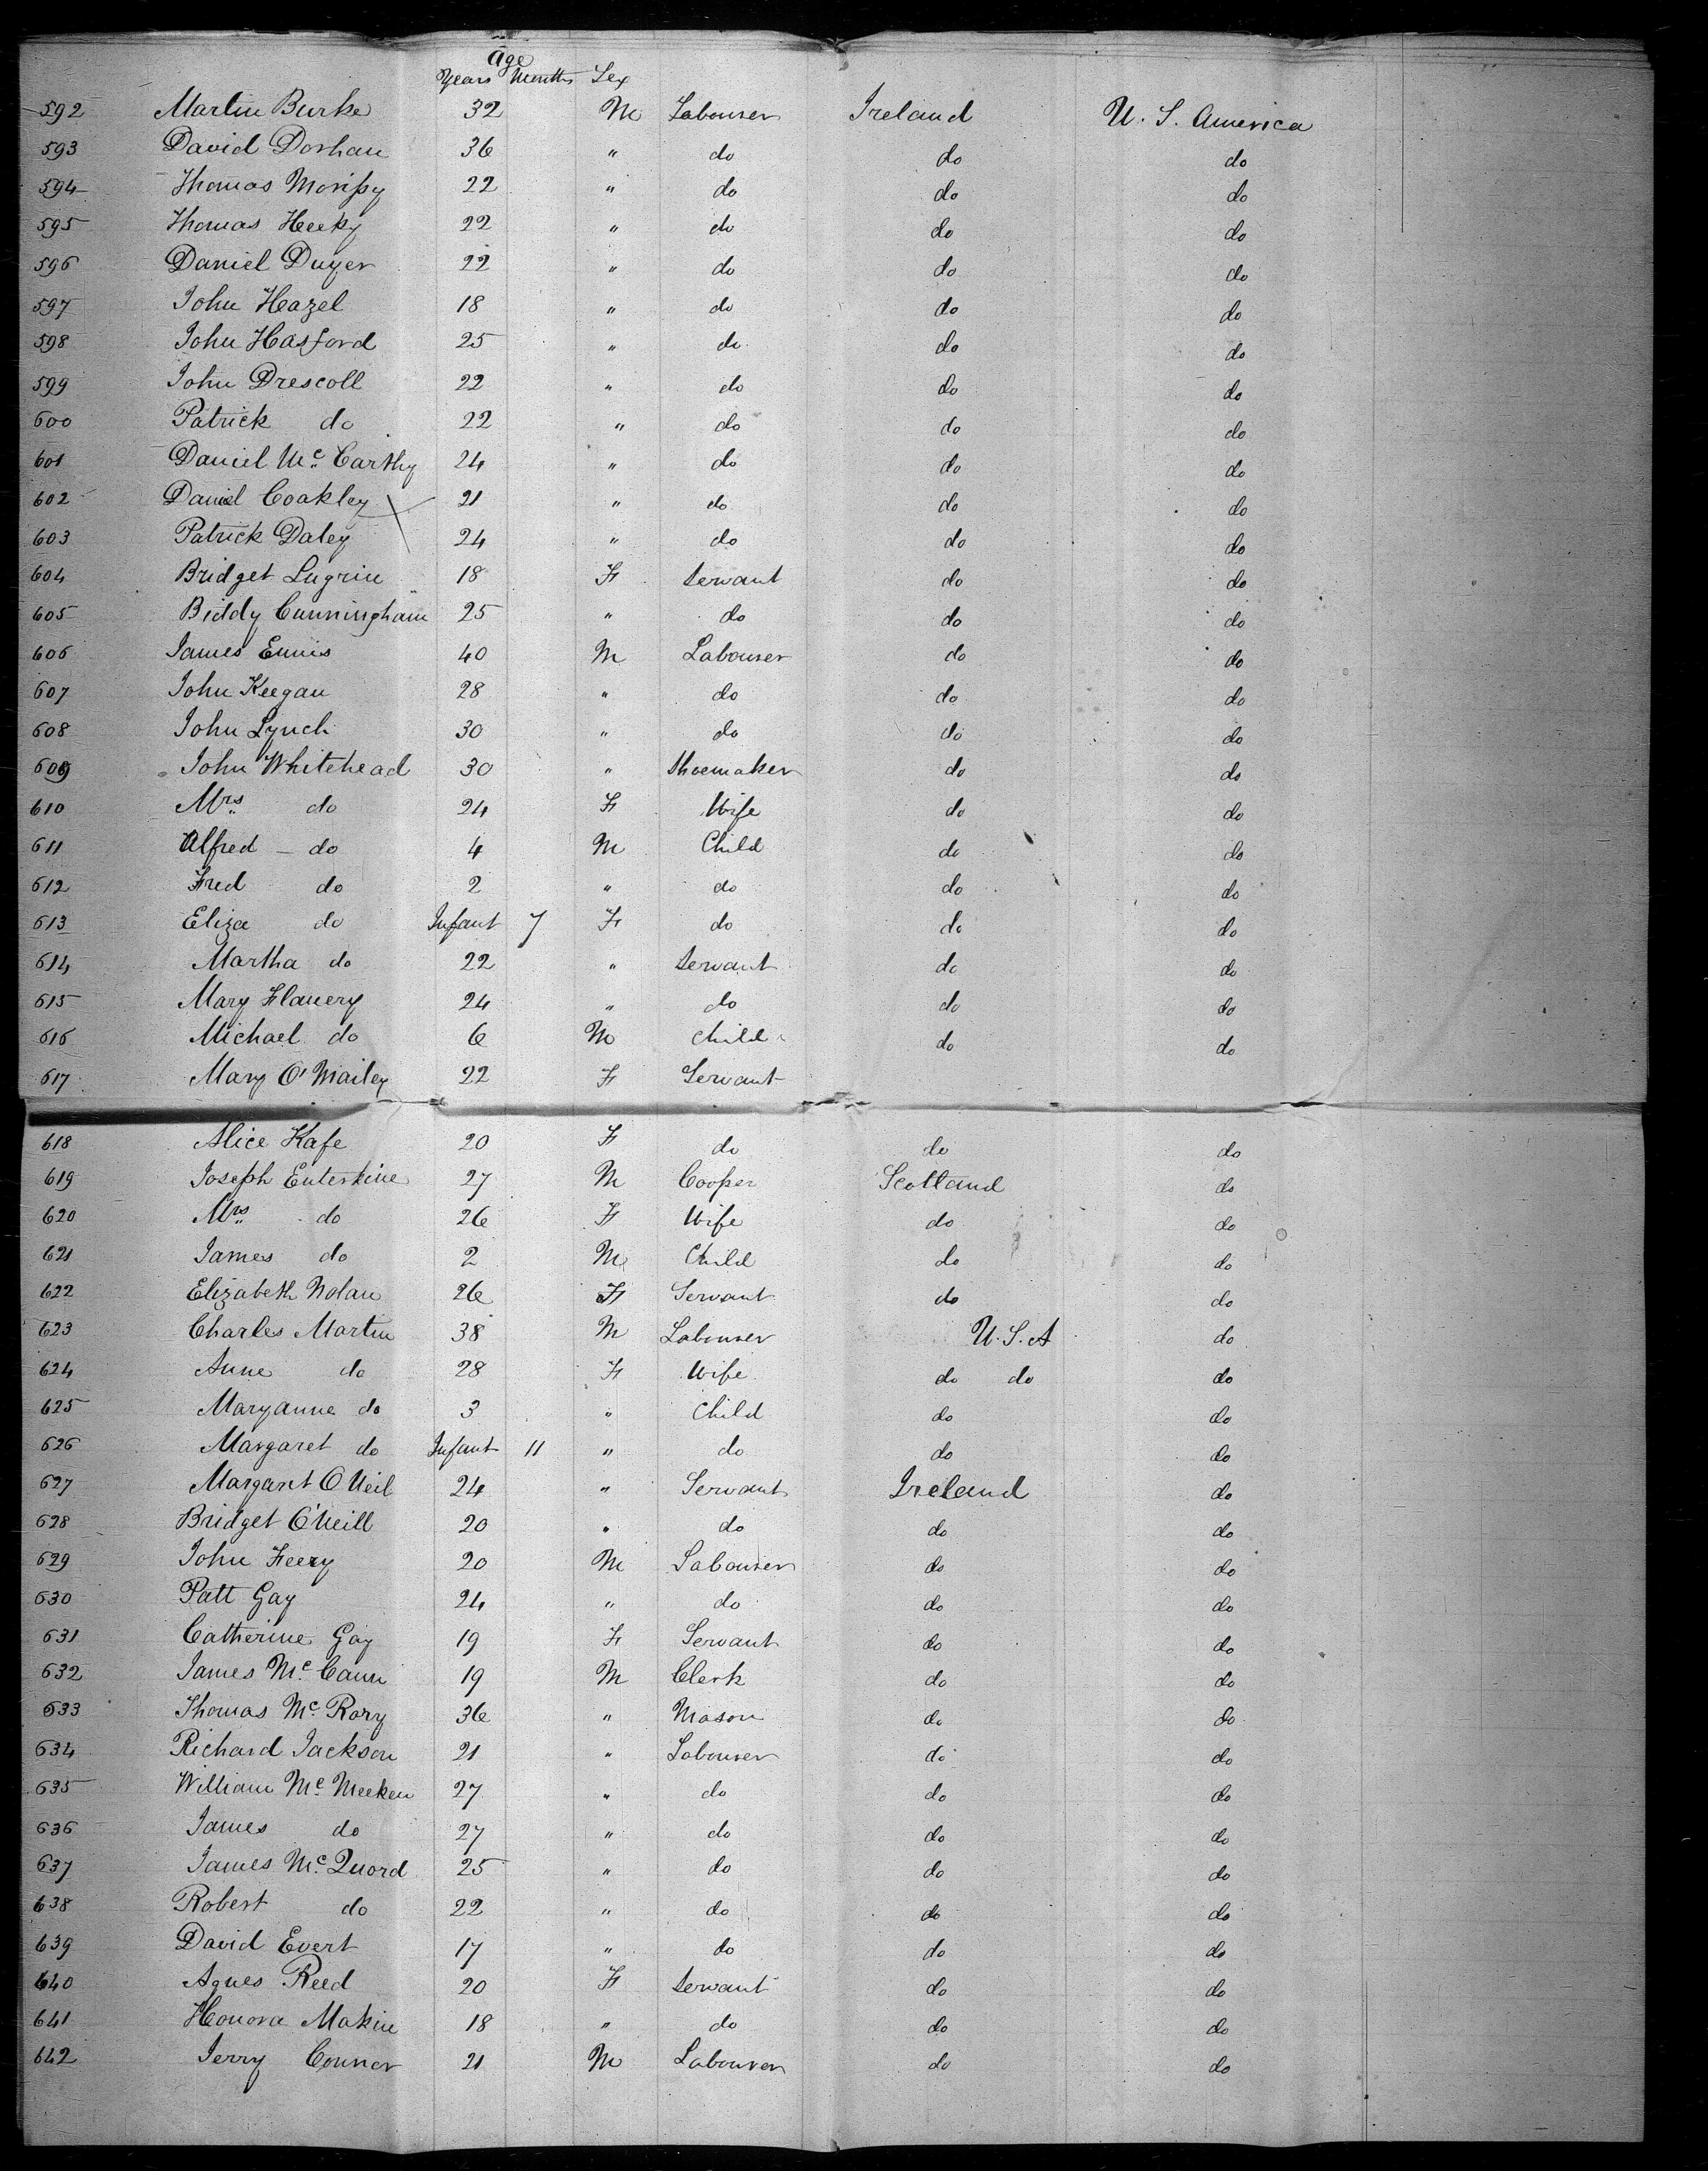 Age
Years Months Sex
592 Martin Burke 32 M Labourer Ireland U. S. America
593 David Dorhan 36 " do do do
594 Thomas Morissy 22 " do do do
595 Thomas Heeky 22 " do do do
596 Daniel Duyer 22 " do do do
597 John Hazel 18 " do do do
598 John Hasford 25 " do do do
599 John Drescoll 22 " do do do
600 Patrick do 22 " do do do
601 Daniel Mc Carthy 24 " do do do
602 Daniel Coakley 21 " do do do
603 Patrick Daley 24 " do do do
604 Bridget Lugrin 18 F Servant do do
605 Biddy Cunningham 25 " do do do
606 James Ennis 40 M Labourer do do
607 John Keegan 28 " do do do
608 John Lynch 30 " do do do
609 John Whitehead 30 " Shoemaker do do
610 Mrs do 24 F Wife do do
611 Alfred - do 4 M Child do do
612 Fred do 2 " do do do
613 Eliza do Infant 7 F do do do
614 Martha do 22 " Servant do do
615 Mary Flanery 24 " do do do
616 Michael do 6 M Child do do
617 Mary O'Mailey 22 F Servant
618 Alice Kafe 20 F do do do
619 Joseph Enterkine 27 M Cooper Scotland do
620 Mrs do 26 F Wife do do
621 James do 2 M Child do do
622 Elizabeth Nolan 26 F Servant do do
623 Charles Martin 38 M Labourer U.S.A do
624 Anne do 28 F Wife do do do
625 Maryanne do 3 " Child do do
626 Margaret do Infant 11 " do do do
627 Margaret O Neil 24 " Servant Ireland do
628 Bridget O'Neill 20 " do do do
629 John Feery 20 M Labourer do do
630 Patt Gay 24 " do do do
631 Catherine Gay 19 F Servant do do
632 James Mc Cann 19 M Clerk do do
633 Thomas Mc Rory 36 " Mason do do
634 Richard Jackson 21 " Labourer do do
635 William Mc Meeken 27 " do do do
636 James do 27 " do do do
637 James Mc Quord 25 " do do do
638 Robert do 22 " do do do
639 David Evert 17 " do do do
640 Agnes Reed 20 F Servant do do
641 Honora Makin 18 " do do do
642 Jerry Conner 21 M Labourer do do